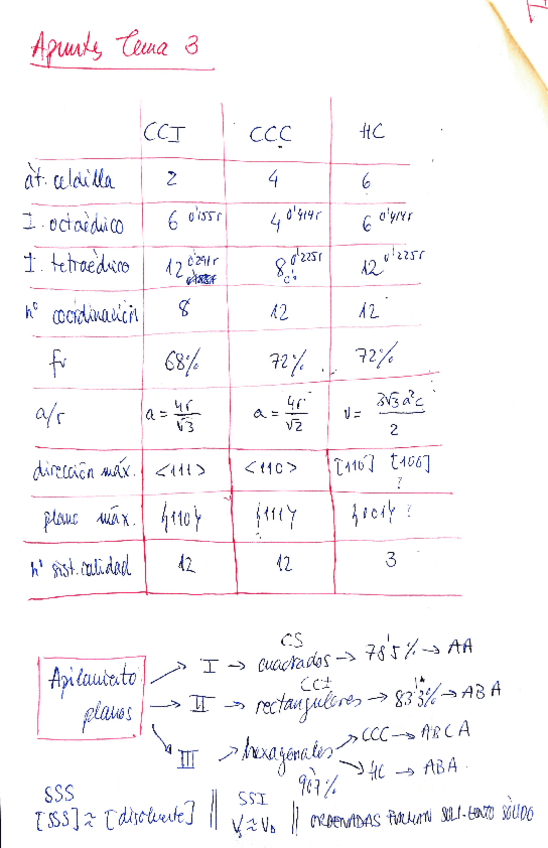 Apuntes Tema 3
CCI CCC HC
àt. celdilla 2 4 6
I. octaédrico 6 0'155r 4 0'414r 6 0'414r
I. tetraédrico 12 0'291r 8 0'225r 12 0'225r
nº coordinación 8 12 12
fv 68% 72% 72%
a/r a = 4r/√3 a = 4r/√2 V = 3√3 a²c / 2
dirección máx. <111> <110> [110] [100] ?
plano máx. {110} {111} {001} ?
nº sist. calidad 12 12 3
Apilamiento planos
I → cuadrados → 78'5% → AA
CS
II → rectangulares → 83'3% → ABA
CCI
III → hexagonales → CCC → ABCA
→ HC → ABA
90'7%
SSS
[SSS] ≈ [disolvente] || SSI || ORDENADAS